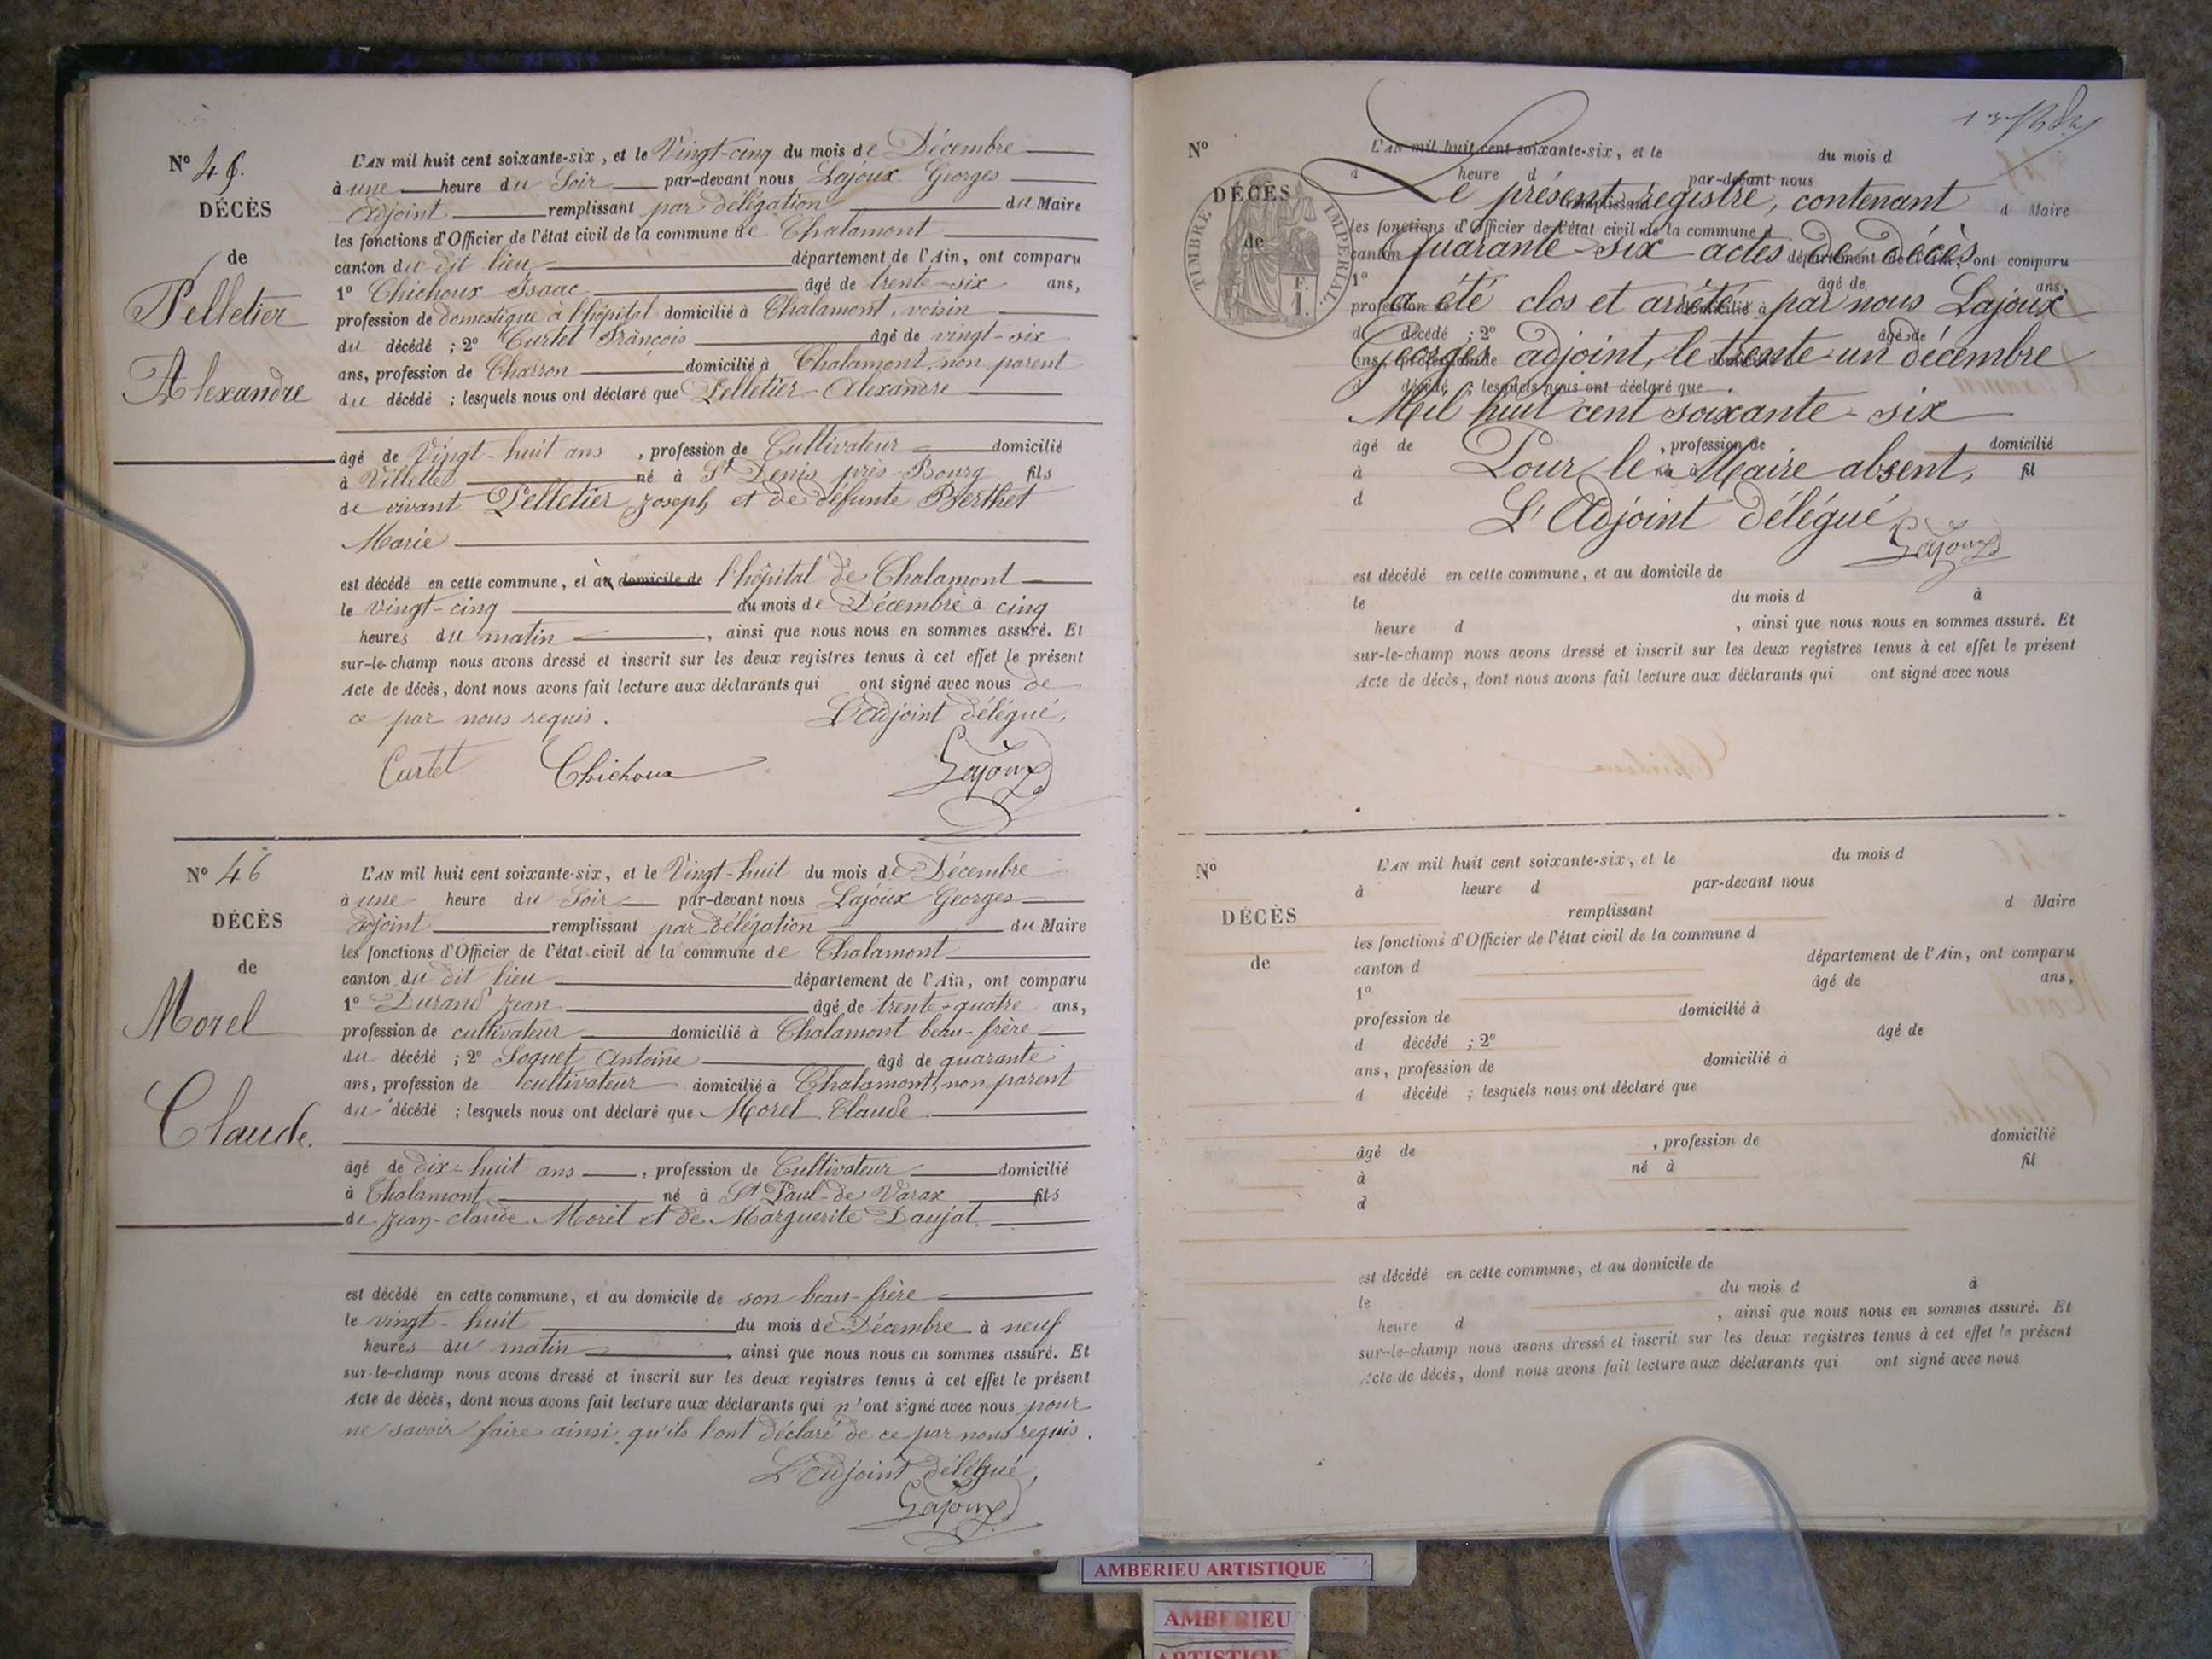 Nº 45.
DÉCÈS
de
Pelletier
Alexandre
L'AN mil huit cent soixante-six, et le Vingt-cinq du mois de Décembre
à une heure du Soir par-devant nous Lajoux Georges
adjoint remplissant par délégation du Maire
les fonctions d'Officier de l'état civil de la commune de Chalamont
canton du dit lieu département de l'Ain, ont comparu
1º Chichoux Isaac âgé de trente-six ans,
profession de domestique à l'hôpital domicilié à Chalamont, voisin
du décédé ; 2º Curtet François âgé de vingt-six
ans, profession de Charron domicilié à Chalamont, non parent
du décédé ; lesquels nous ont déclaré que Pelletier Alexandre
âgé de Vingt-huit ans, profession de Cultivateur domicilié
à Villette né à St Denis près Bourg fils
de vivant Pelletier Joseph et de défunte Berthet
Marie
est décédé en cette commune, et à domicile de l'hôpital de Chalamont
le vingt-cinq du mois de Décembre à cinq
heures du matin, ainsi que nous nous en sommes assuré. Et
sur-le-champ nous avons dressé et inscrit sur les deux registres tenus à cet effet le présent
Acte de décès, dont nous avons fait lecture aux déclarants qui ont signé avec nous de
ce par nous requis. L'adjoint délégué,
Curtet Chichoux Lajoux
Nº 46
DÉCÈS
de
Morel
Claude.
L'AN mil huit cent soixante-six, et le Vingt-huit du mois de Décembre
à une heure du Soir par-devant nous Lajoux Georges
adjoint remplissant par délégation du Maire
les fonctions d'Officier de l'état civil de la commune de Chalamont
canton du dit lieu département de l'Ain, ont comparu
1º Durand Jean âgé de trente-quatre ans,
profession de cultivateur domicilié à Chalamont beau-frère
du décédé ; 2º Soquet Antoine âgé de quarante
ans, profession de cultivateur domicilié à Chalamont, non parent
du décédé ; lesquels nous ont déclaré que Morel Claude
âgé de dix-huit ans, profession de Cultivateur domicilié
à Chalamont né à St Paul-de Varax fils
de Jean-claude Morel et de Marguerite Daujat
est décédé en cette commune, et au domicile de son beau-frère
le vingt-huit du mois de Décembre à neuf
heures du matin, ainsi que nous nous en sommes assuré. Et
sur-le-champ nous avons dressé et inscrit sur les deux registres tenus à cet effet le présent
Acte de décès, dont nous avons fait lecture aux déclarants qui n'ont signé avec nous pour
ne savoir faire ainsi qu'ils l'ont déclaré de ce par nous requis.
L'adjoint délégué,
Lajoux
Nº
DÉCÈS
de
TIMBRE IMPÉRIAL
L'AN mil huit cent soixante-six, et le du mois d
heure d par-devant nous
Le présent registre, contenant
remplissant d Maire
les fonctions d'Officier de l'état civil de la commune d
quarante-six actes de décès
canton département de l'Ain, ont comparu
1º âgé de ans,
a été clos et arrêté par nous Lajoux
profession de domicilié à
d décédé ; 2º âgé de
Georges adjoint, le trente-un décembre
ans, profession de domicilié
d décédé ; lesquels nous ont déclaré que
Mil huit cent soixante-six
âgé de , profession de domicilié
Pour le Maire absent,
à né à fil
d
L'Adjoint délégué
Lajoux
est décédé en cette commune, et au domicile de
le du mois d à
heure d , ainsi que nous nous en sommes assuré. Et
sur-le-champ nous avons dressé et inscrit sur les deux registres tenus à cet effet le présent
Acte de décès, dont nous avons fait lecture aux déclarants qui ont signé avec nous
Nº
DÉCÈS
de
L'AN mil huit cent soixante-six, et le du mois d
à heure d par-devant nous
remplissant d Maire
les fonctions d'Officier de l'état civil de la commune d
canton d département de l'Ain, ont comparu
1º âgé de ans,
profession de domicilié à
d décédé ; 2º âgé de
ans, profession de domicilié à
d décédé ; lesquels nous ont déclaré que
âgé de , profession de domicilié
à né à fil
d
est décédé en cette commune, et au domicile de
le du mois d à
heure d , ainsi que nous nous en sommes assuré. Et
sur-le-champ nous avons dressé et inscrit sur les deux registres tenus à cet effet le présent
Acte de décès, dont nous avons fait lecture aux déclarants qui ont signé avec nous
AMBERIEU ARTISTIQUE
AMBERIEU
ARTISTIQUE